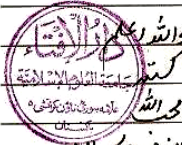 واللہ اعلم
کتبہ
محب اللہ
دار الافتاء
جامعۃ العلوم الاسلامیۃ
علامہ بنوری ٹاؤن کراچی ۵
پاکستان